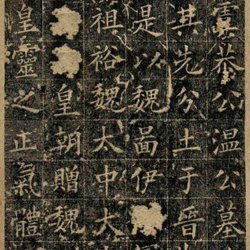 虞恭公溫公墓
其先分土于晉
是以魏啚伊
祖裕魏太中大
皇朝贈魏
皇靈之正氣體